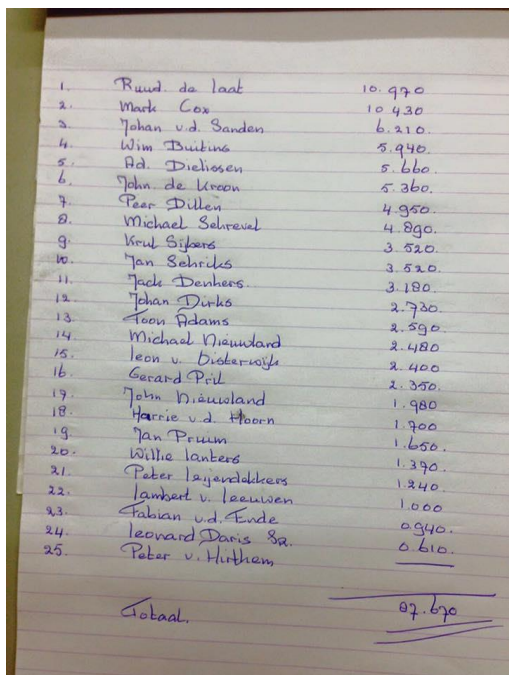 1. Ruud de laat 10.970
2. Mark Cox 10 430
3. Johan v.d. Sanden 6.210.
4. Wim Buiting 5.940.
5. Ad. Dielissen 5.660.
6. John de Kroon 5.360.
7. Peer Dillen 4.950.
8. Michael Schrevel 4.890.
9. Sijbers 3.520.
10. Jan Schriks 3.520.
11. Jack Denhers. 3.180.
12. Johan Dirks 2.730.
13. Toon Adams 2.590.
14. Michael Nieuwland 2.480
15. leon v. Disterwijk 2.400
16. Gerard Pril 2.350.
17. John Nieuwland 1.980
18. Harrie v.d. Hoorn 1.700
19. Jan Pruim 1.650.
20. Willie lankers 1.370.
21. Peter leijendekkers 1.240.
22. lambert v. leeuwen 1.000
23. Fabian v.d. Ende 0.940.
24. leonard Daris Sr. 0.610.
25. Peter v. Hirthem
Totaal. 87.670